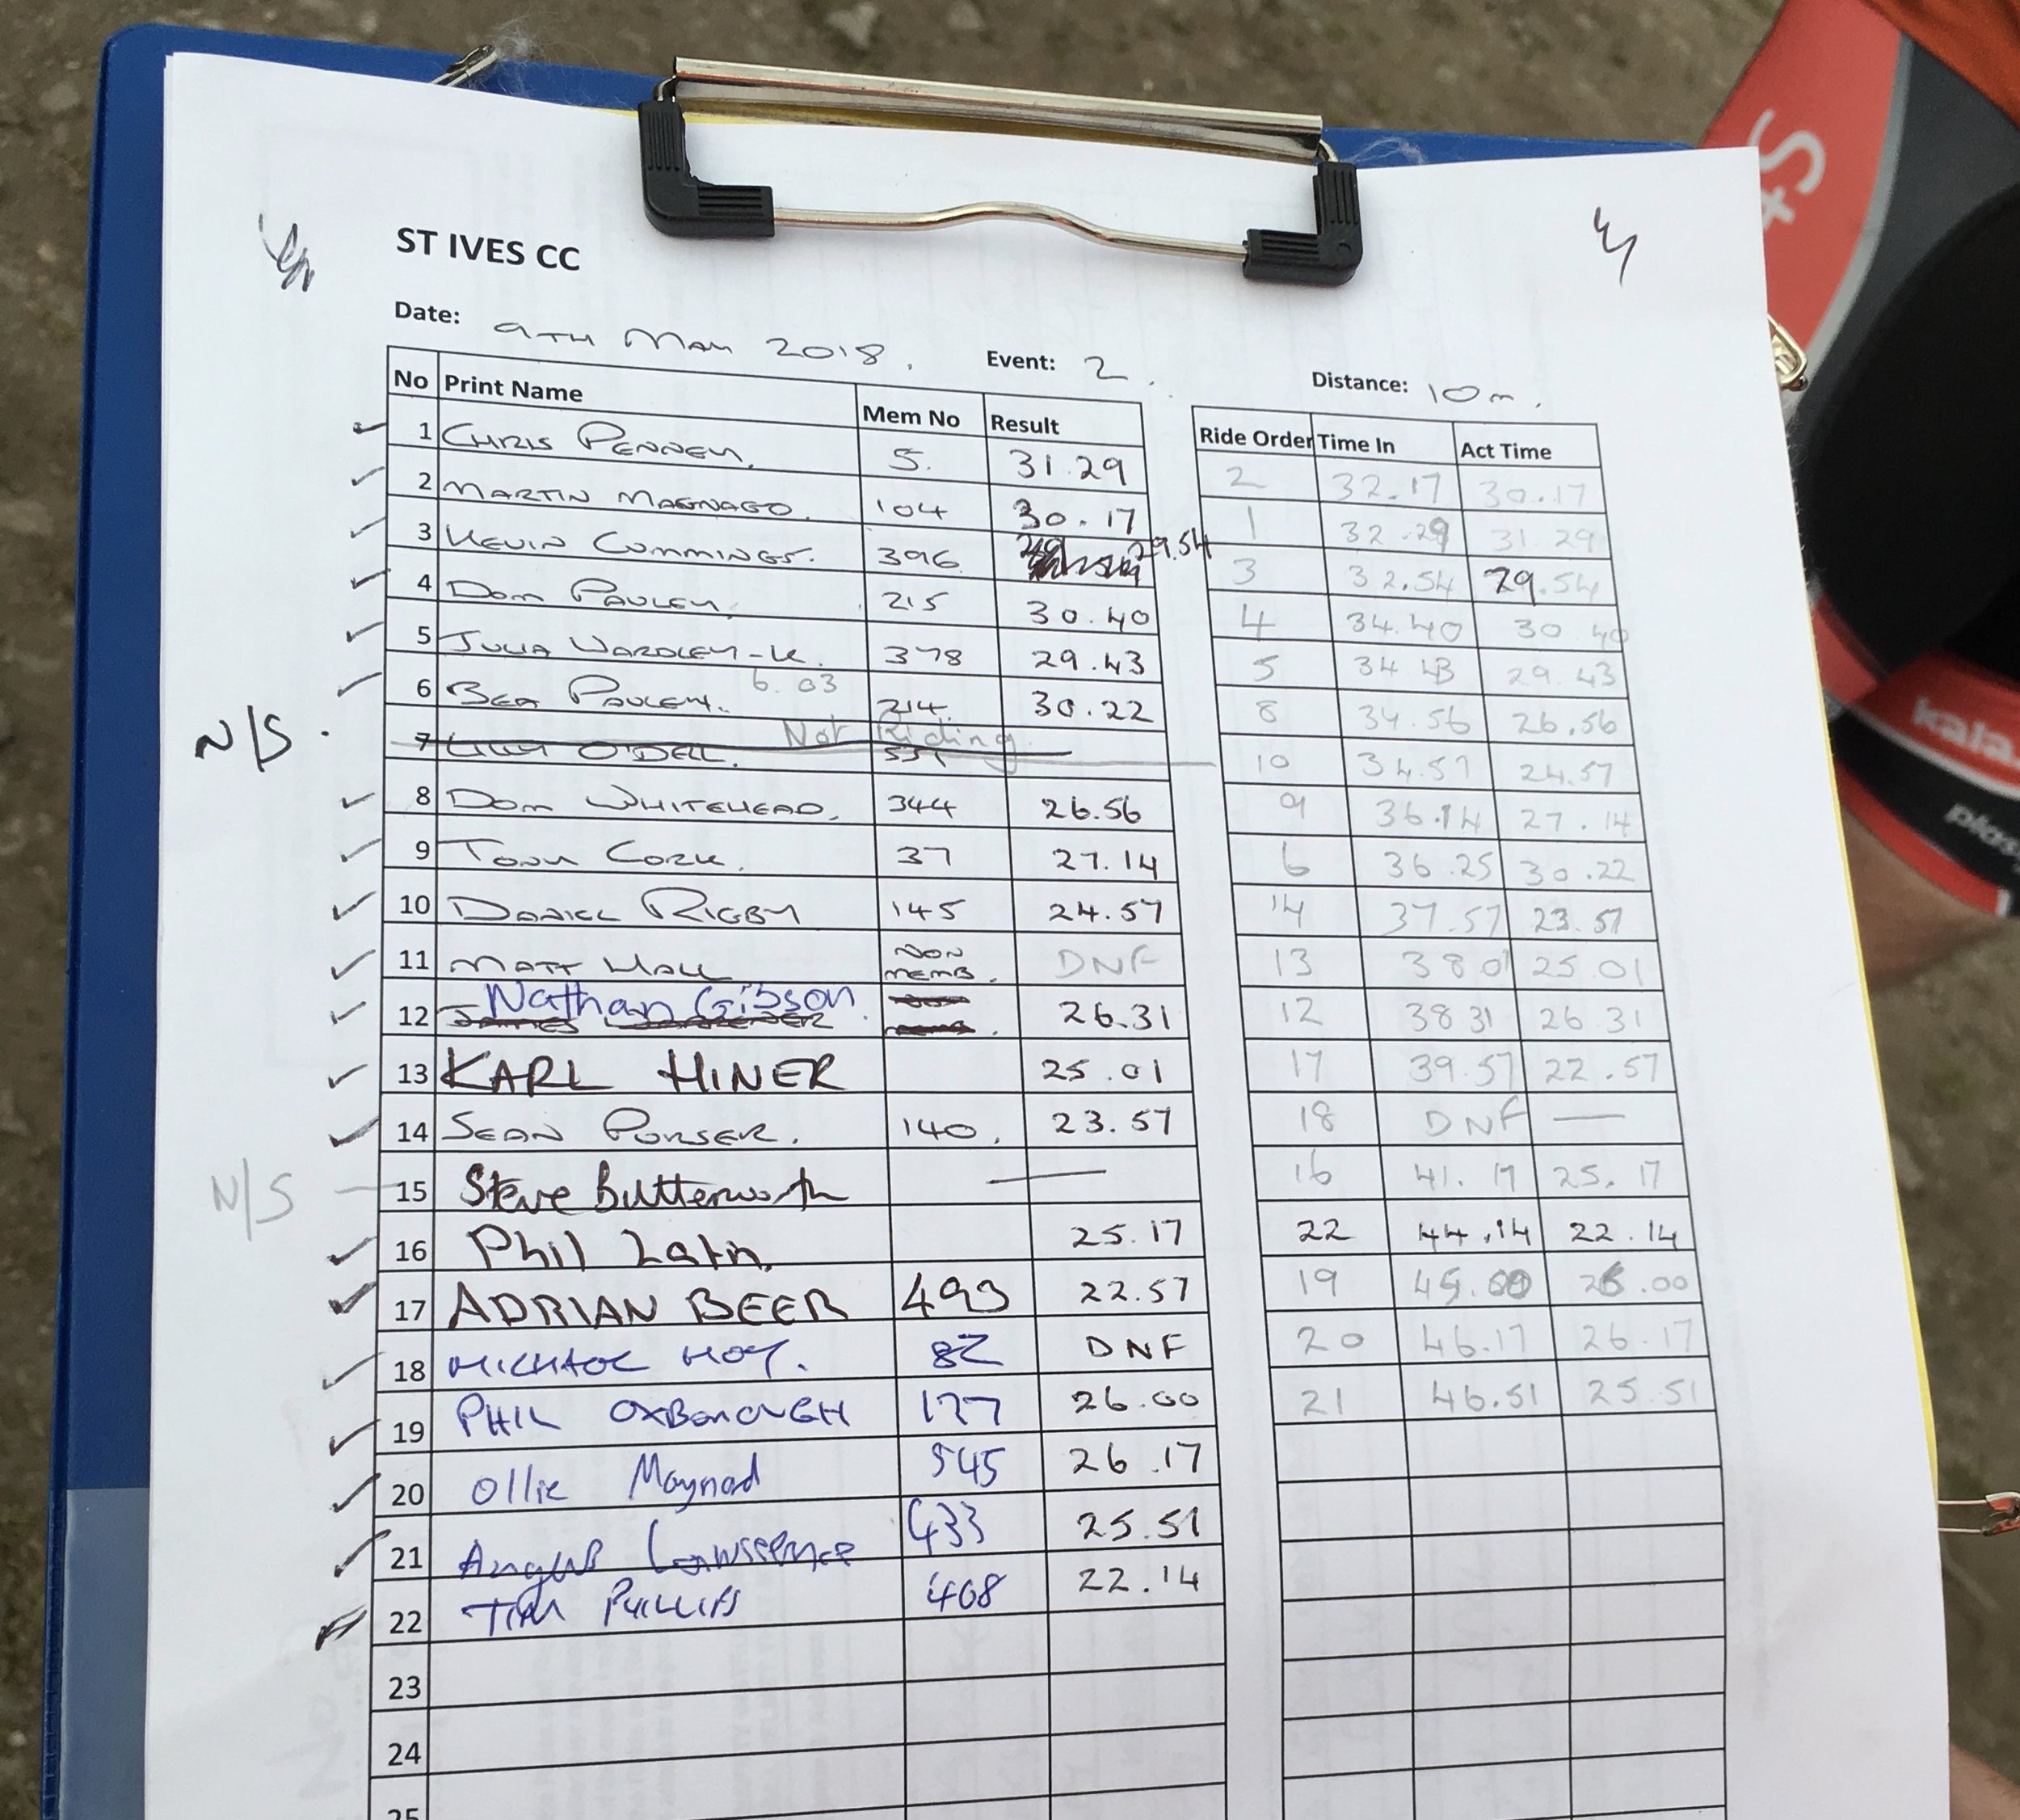 ST IVES CC
Date: 9TH MAY 2018. Event: 2. Distance: 10m.
No Print Name Mem No Result Ride Order Time In Act Time
1 CHRIS PENNEY. 5. 31.29 2 32.17 30.17
2 MARTIN MAGNAGO. 104 30.17 1 32.29 31.29
3 KEVIN COMMINGS. 396 29.54 3 32.54 29.54
4 DOM PAULEY. 215 30.40 4 34.40 30.40
5 JULIA WARDLEY-K. 378 29.43 5 34 43 29.43
6 BEA PAULEY. 6.03 214 30.22 8 34.56 26.56
N/S. 7 O'DELL. Not Riding 10 34.57 24.57
8 DOM WHITEHEAD. 344 26.56 9 36.14 27.14
9 TONY CORK. 37 27.14 6 36.25 30.22
10 DANIEL RIGBY 145 24.57 14 37.57 23.57
11 MATT HALL NON MEMB. DNF 13 38 01 25.01
12 Nathan Gibson. 26.31 12 38 31 26.31
13 KARL HINER 25.01 17 39.57 22.57
14 SEAN PURSER. 140. 23.57 18 DNF —
N/S 15 Steve Butterworth — 16 41.17 25.17
16 Phil 25.17 22 44.14 22.14
17 ADRIAN BEER 493 22.57 19 45.00 26.00
18 MICHAEL HOY. 82 DNF 20 46.17 26.17
19 PHIL OXBOROUGH 177 26.00 21 46.51 25.51
20 Ollie Maynad 545 26.17
21 Angus Lawrence 433 25.51
22 TIM PHILLIPS 468 22.14
23
24
25
St
kala
plas